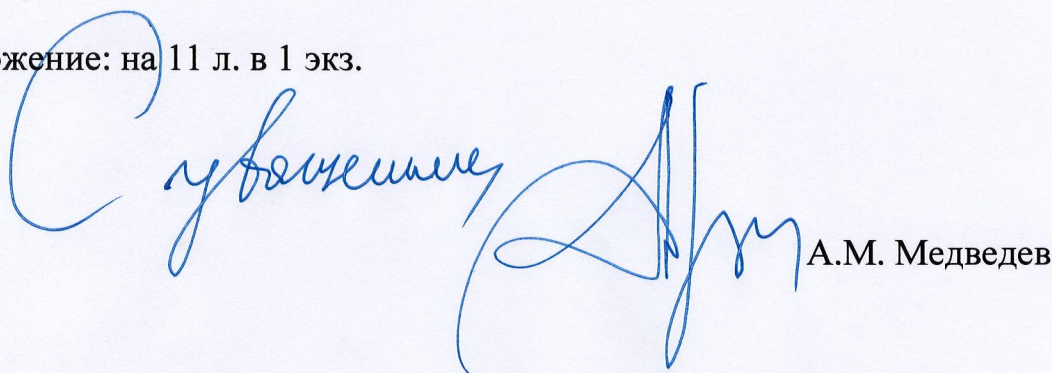 ожение: на 11 л. в 1 экз.
С уважением,
А.М. Медведев